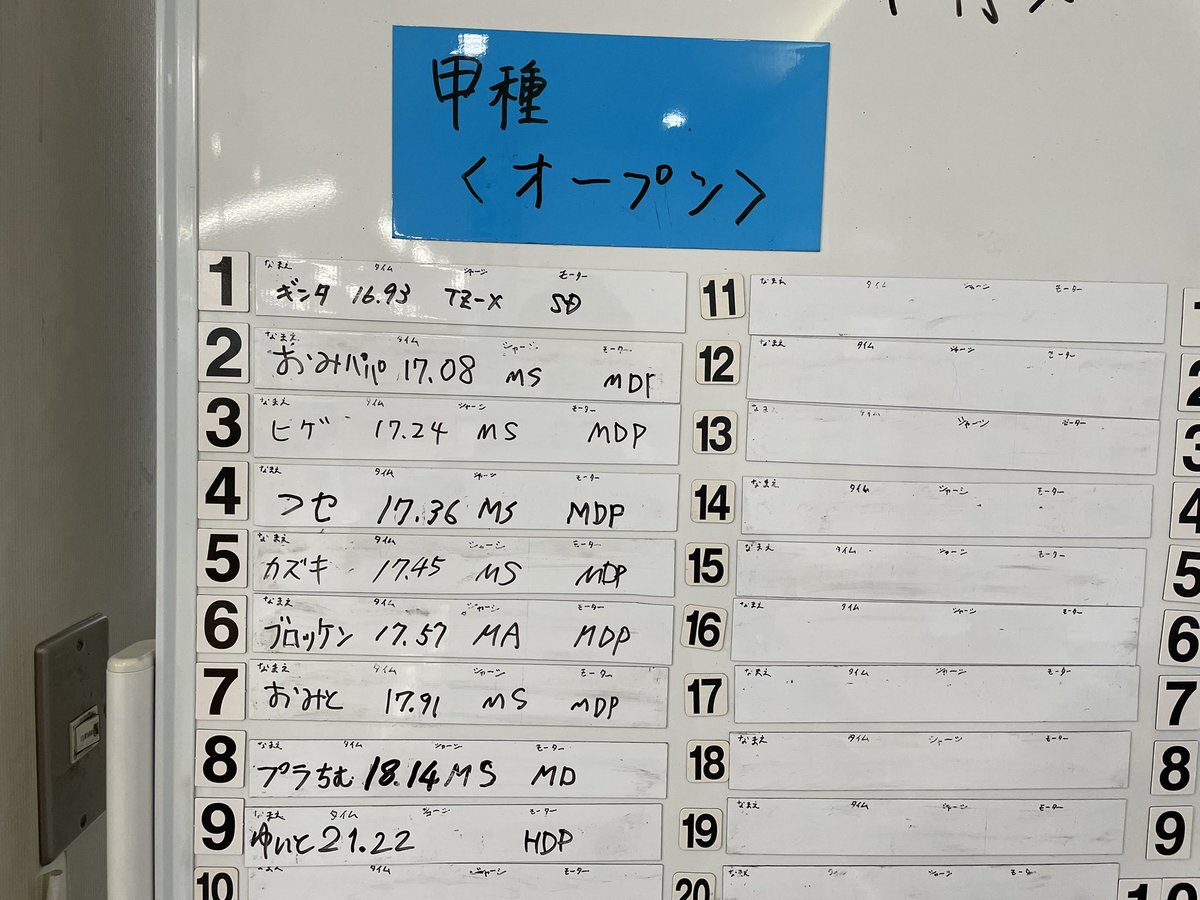 甲種
<オープン>
1 なまえ タイム シャーシ モーター
ギンタ 16.93 TZ-X SD
2 なまえ タイム シャーシ モーター
おみパパ 17.08 MS MDP
3 なまえ タイム シャーシ モーター
ヒゲ 17.24 MS MDP
4 なまえ タイム シャーシ モーター
フセ 17.36 MS MDP
5 なまえ タイム シャーシ モーター
カズキ 17.45 MS MDP
6 なまえ タイム シャーシ モーター
ブロッケン 17.57 MA MDP
7 なまえ タイム シャーシ モーター
おみと 17.91 MS MDP
8 なまえ タイム シャーシ モーター
プラちむ 18.14 MS MD
9 なまえ タイム シャーシ モーター
ゆいと 21.22 HDP
10 なまえ タイム シャーシ モーター
11 なまえ タイム シャーシ モーター
12 なまえ タイム シャーシ モーター
13 なまえ タイム シャーシ モーター
14 なまえ タイム シャーシ モーター
15 なまえ タイム シャーシ モーター
16 なまえ タイム シャーシ モーター
17 なまえ タイム シャーシ モーター
18 なまえ タイム シャーシ モーター
19 なまえ タイム シャーシ モーター
20 なまえ タイム シャーシ モーター
2
3
4
5
6
7
8
9
10